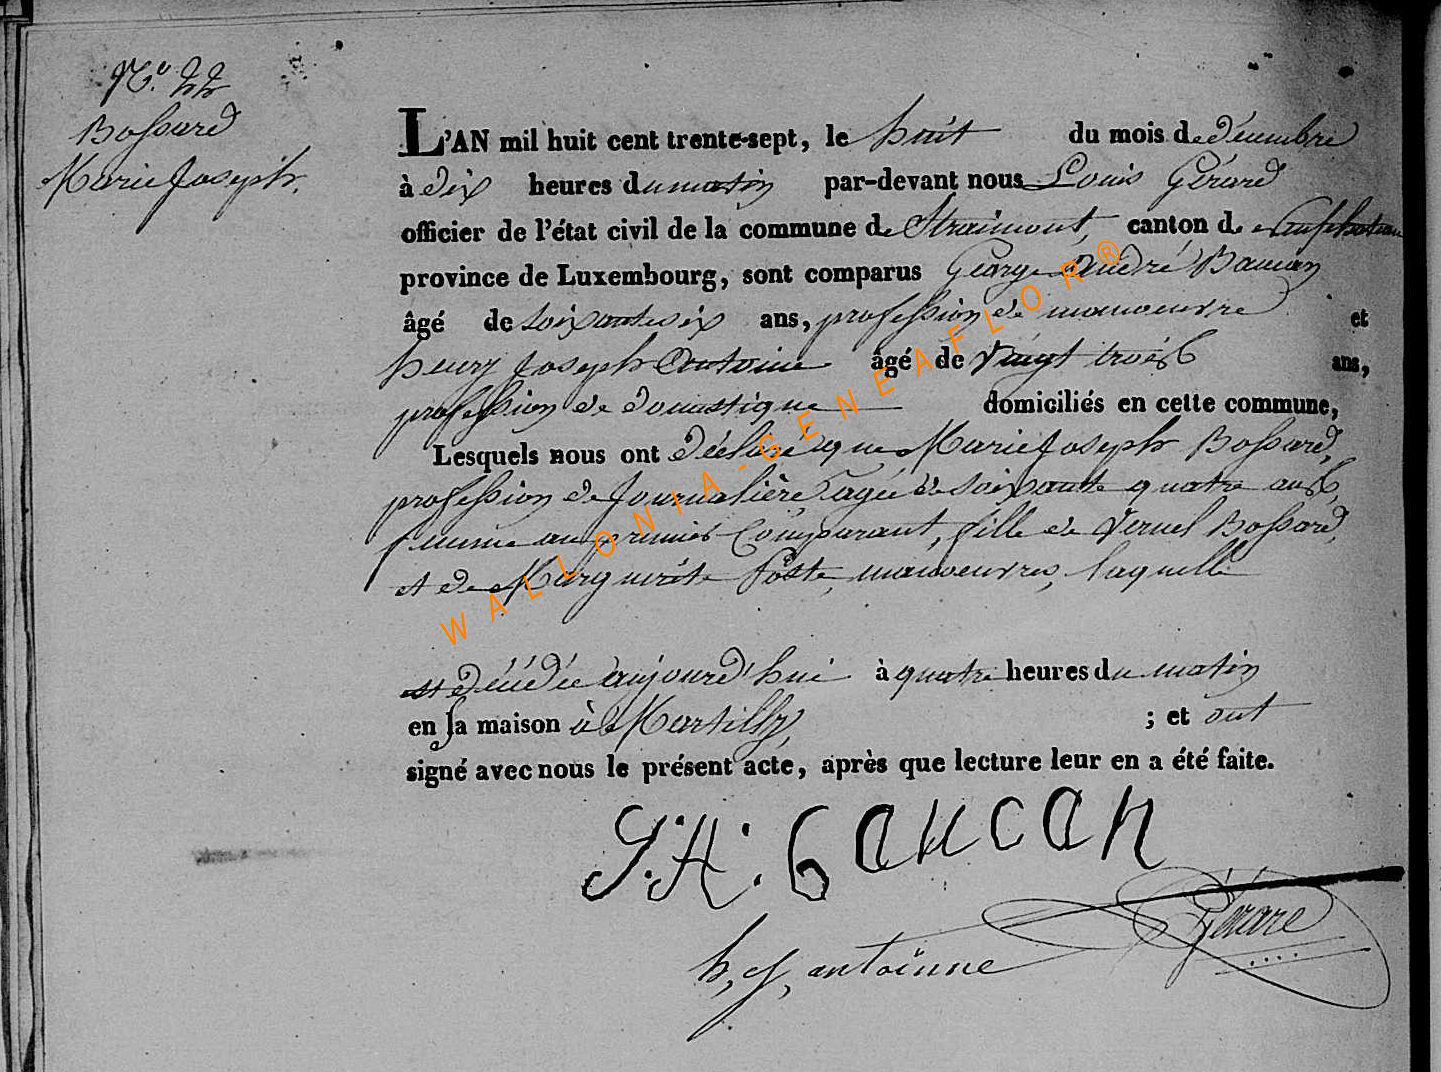 N.o 22
Bossard
Marie Joseph.
L'AN mil huit cent trente-sept, le huit du mois de décembre
à dix heures du matin par-devant nous Louis Gérard
officier de l'état civil de la commune de Straimont, canton de neufchateau
province de Luxembourg, sont comparus George andré Baucan
âgé de soixante six ans, profession de manoeuvre et
henry Joseph Antoine âgé de Vingt trois ans,
profession de domestique domiciliés en cette commune,
Lesquels nous ont déclaré que Marie Joseph Bossard,
profession de Journalière, agée de soixante quatre ans,
femme au premier Comparant, fille de Bossard,
et de Marguerite Poste, manoeuvres, laquelle
est décédée aujourd'hui à quatre heures du matin
en sa maison à Martilly, ; et ont
signé avec nous le présent acte, après que lecture leur en a été faite.
J. A. baucan
Gérard
h, j, antoinne
WALLONIA-GENEAFLOR®